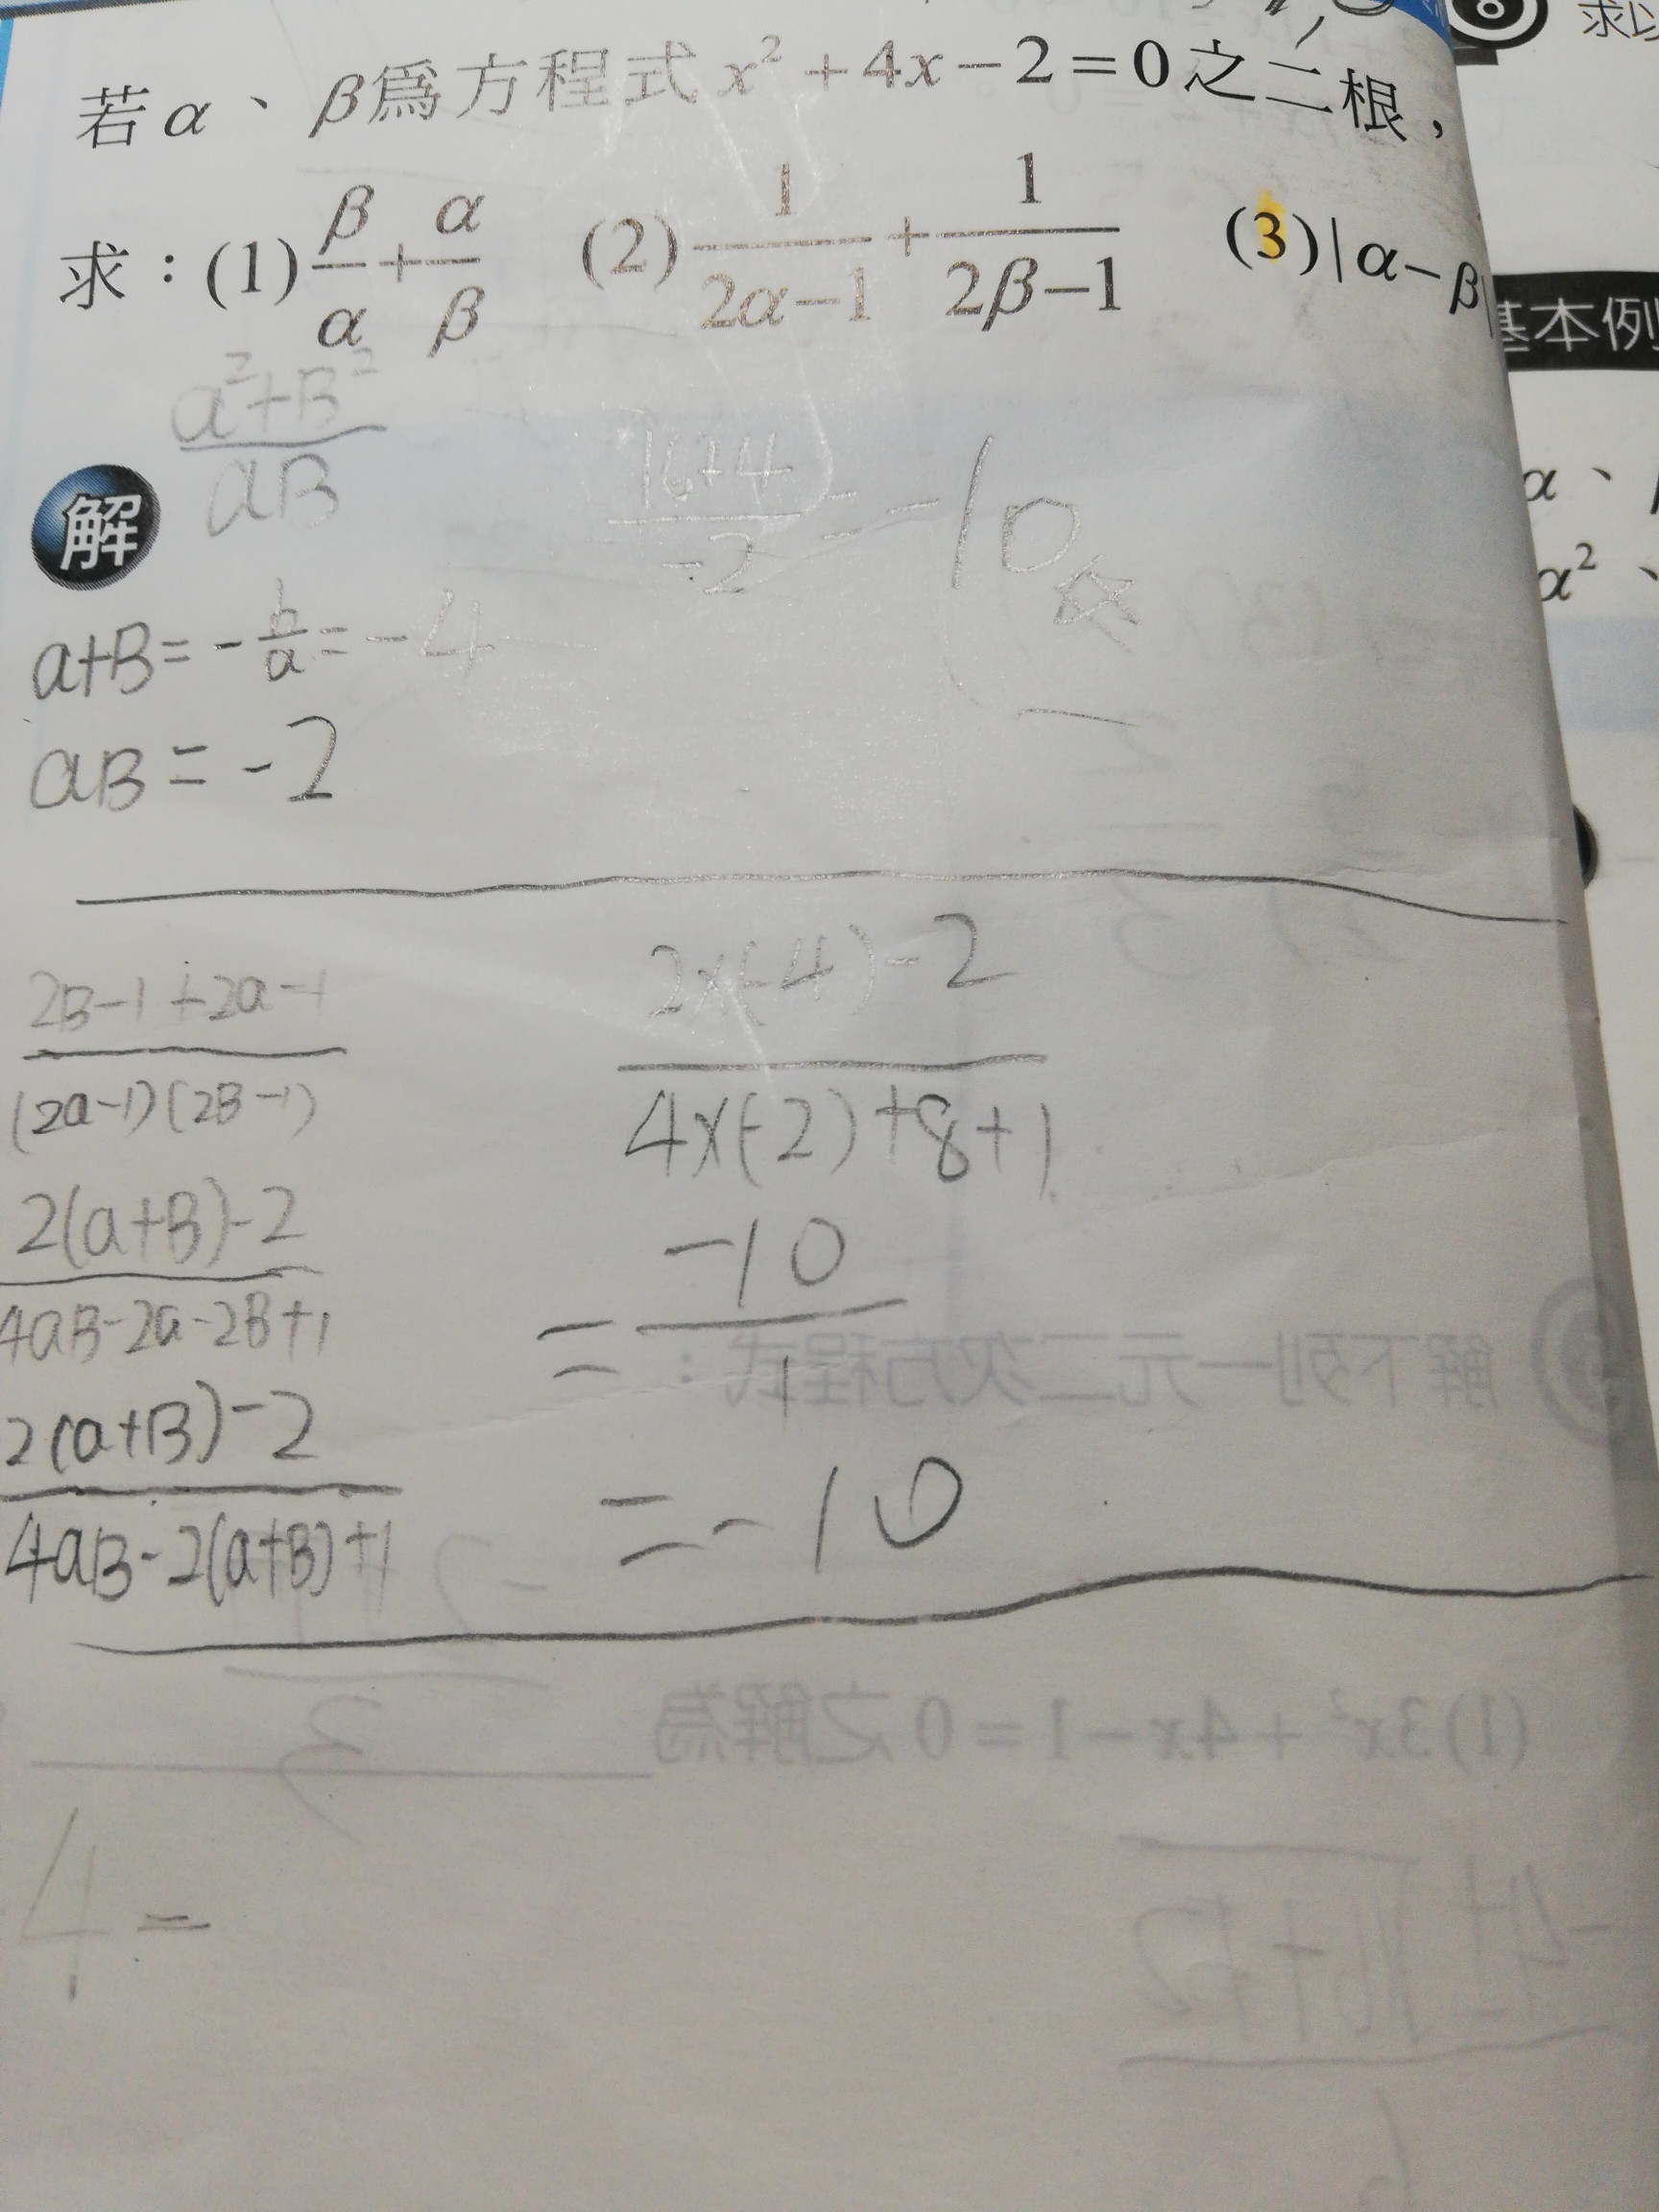 求以
若α、β為方程式 x² + 4x − 2 = 0 之二根，
求：(1) β/α + α/β (2) 1/(2α−1) + 1/(2β−1) (3) |α−β|
基本例
α、
α²、
解
a²+B²
aB
16+4
-2
= -10
a+B = -b/a = -4
aB = -2
2B-1+2a-1
(2a-1)(2B-1)
2(a+B)-2
4aB-2a-2B+1
2(a+B)-2
4aB-2(a+B)+1
2x(-4)-2
4x(-2)+8+1
= -10
1
= -10
解下列一元二次方程式：
(1) 3x² + 4x − 1 = 0 之解為
4 =